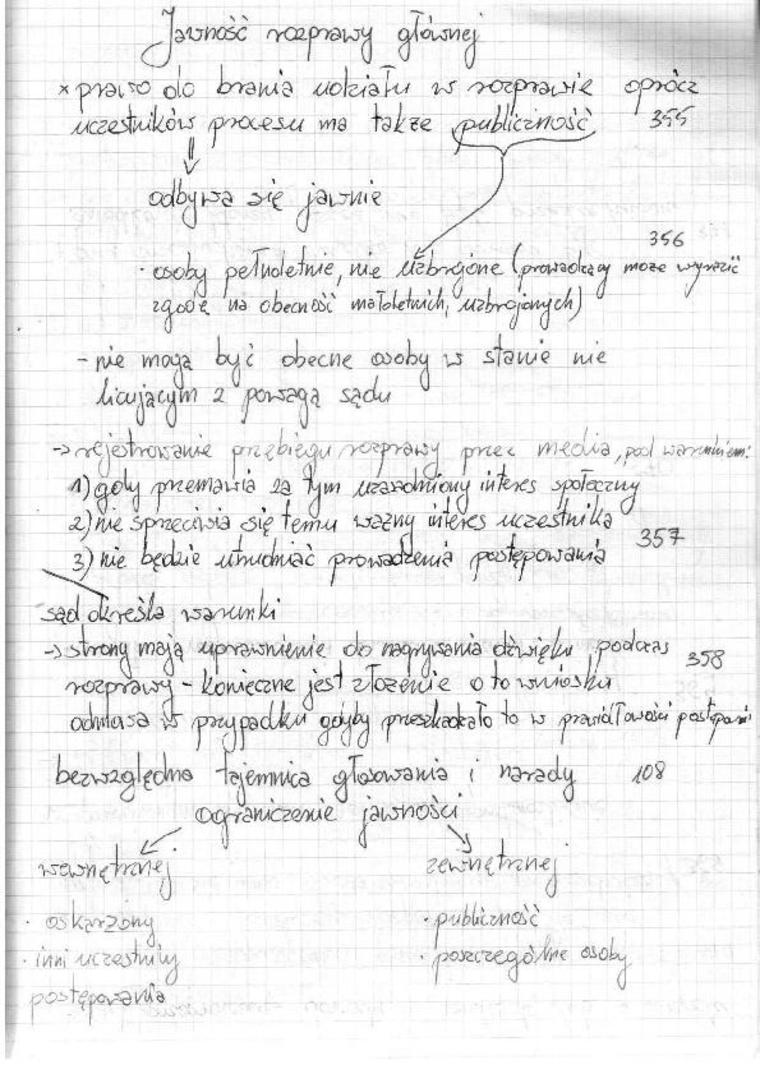 Jawność rozprawy głównej
* prawo do brania udziału w rozprawie oprócz
uczestników procesu ma także publiczność 355
odbywa się jawnie
356
· osoby pełnoletnie, nie uzbrojone (prowadzący może wyrazić
zgodę na obecność małoletnich, uzbrojonych)
- nie mogą być obecne osoby w stanie nie
licującym z powagą sądu
-> rejestrowanie przebiegu rozprawy przez media, pod warunkiem:
1) gdy przemawia za tym uzasadniony interes społeczny
2) nie sprzeciwia się temu ważny interes uczestnika
3) nie będzie utrudniać prowadzenia postępowania 357
sąd określa warunki
-> strony mają uprawnienie do nagrywania dźwięku podczas 358
rozprawy - konieczne jest złożenie o to wniosku
odmowa w przypadku gdyby przeszkadzało to w prawidłowości postępowań
bezwzględna tajemnica głosowania i narady 108
ograniczenie jawności
wewnętrznej zewnętrznej
· oskarżony · publiczność
· inni uczestnicy · poszczególne osoby
postępowania